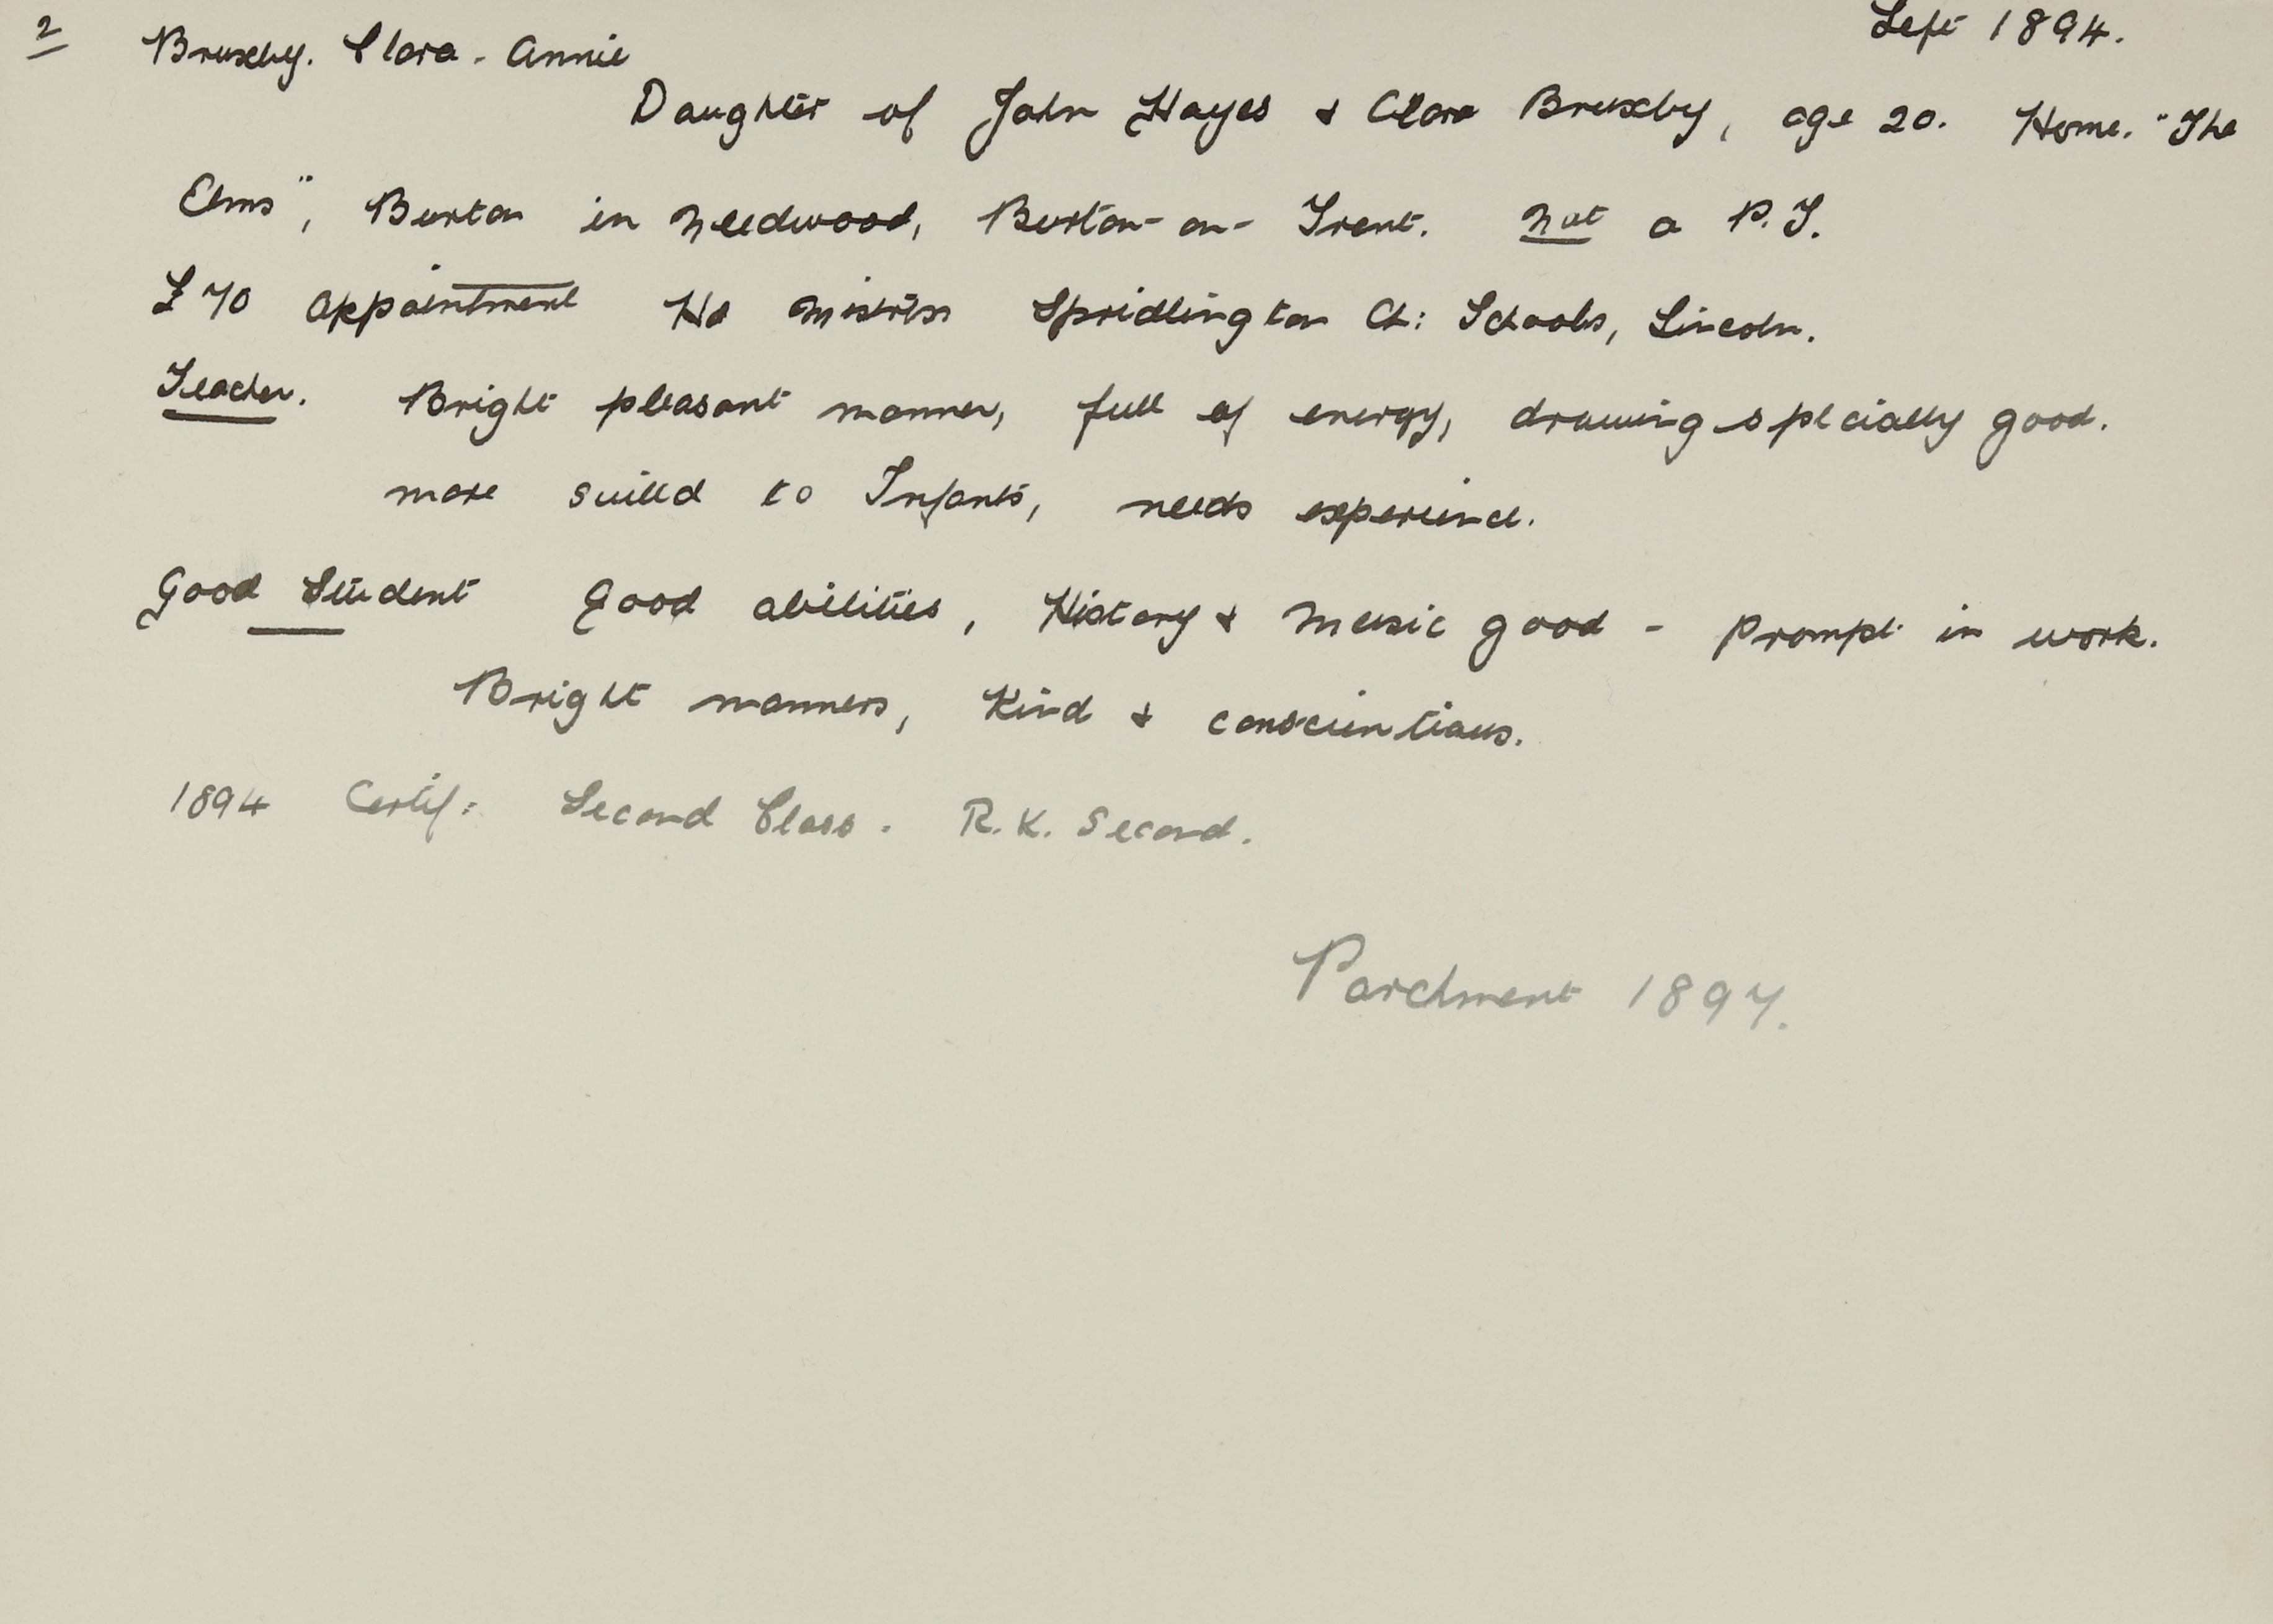 2 Bruxby. Clara - Annie Left 1894.
Daughter of John Hayes & Clara Bruxby, age 20. Home. "The
Elms", Burton in Needwood, Burton-on-Trent. Not a P.T.
£70 appointment Hd Mistress Spridlington Ch: Schools, Lincoln.
Teacher. Bright pleasant manner, full of energy, drawing specially good.
more suited to Infants, needs experience.
Good Student Good abilities, History & Music good - Prompt in work.
Bright manners, Kind & conscientious.
1894 Certif: Second Class. R.K. Second.
Parchment 1897.